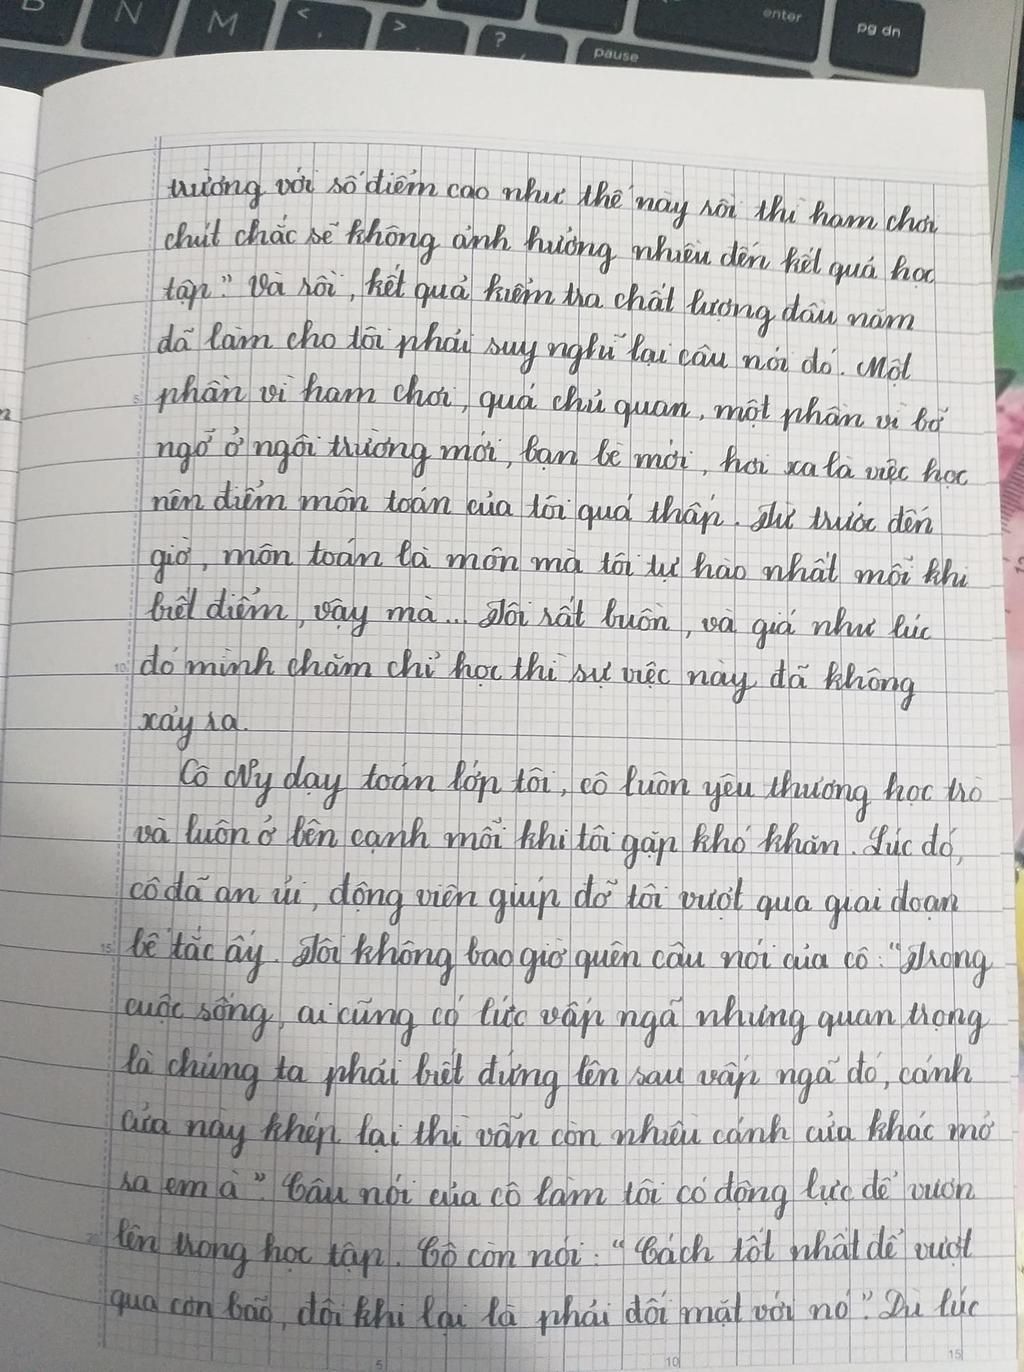 N
M
<
>
?
enter
pg dn
pause
trường với số điểm cao như thế này rồi thì ham chơi
chút chắc sẽ không ảnh hưởng nhiều đến kết quả học
tập." Và rồi, kết quả kiểm tra chất lượng đầu năm
đã làm cho tôi phải suy nghĩ lại câu nói đó. Một
5 phần vì ham chơi, quá chủ quan, một phần vì bỡ
ngỡ ở ngôi trường mới, bạn bè mới, hơi xa là việc học
nên điểm môn toán của tôi quá thấp. Từ trước đến
giờ, môn toán là môn mà tôi tự hào nhất mỗi khi
biết điểm, vậy mà... Tôi rất buồn, và giá như lúc
10 đó mình chăm chỉ học thì sự việc này đã không
xảy ra.
Cô My dạy toán lớp tôi, cô luôn yêu thương học trò
và luôn ở bên cạnh mỗi khi tôi gặp khó khăn. Lúc đó,
cô đã an ủi, động viên giúp đỡ tôi vượt qua giai đoạn
15 bế tắc ấy. Tôi không bao giờ quên câu nói của cô: "Trong
cuộc sống, ai cũng có lúc vấp ngã nhưng quan trọng
là chúng ta phải biết đứng lên sau vấp ngã đó, cánh
cửa này khép lại thì vẫn còn nhiều cánh cửa khác mở
ra em à". Câu nói của cô làm tôi có động lực để vươn
20 lên trong học tập. Cô còn nói: "Cách tốt nhất để vượt
qua cơn bão, đôi khi lại là phải đối mặt với nó". Dù lúc
5 10 15